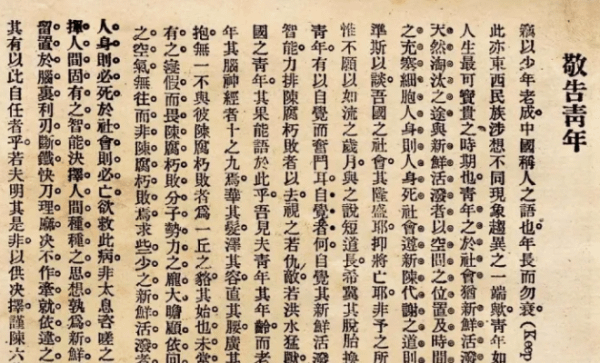 敬告靑年
竊以少年老成中國稱人之語也年長而勿衰(Keep
此亦東西民族涉想不同現象趨異之一端歟靑年如
人生最可寶貴之時期也靑年之於社會猶新鮮活
天然淘汰之途與新鮮活潑者以空間之位置及時間
之充塞細胞人身則人身死社會遵新陳代謝之道則
準斯以談吾國之社會其隆盛耶抑將亡耶非予之所
惟不願以如流之歲月與之說短道長希冀其脫胎換
靑年有以自覺而奮鬥耳自覺者何自覺其新鮮活
智能力排陳腐朽敗者以去視之若仇敵若洪水猛獸
國之靑年其果能語於此乎吾見夫靑年其年齡而老
年其腦神經者十之九焉華其髮澤其容直其腰廣其
抱無一不與彼陳腐朽敗者爲一丘之貉其始也未嘗
有之寖假而畏陳腐朽敗分子勢力之龐大瞻顧依回
之空氣無往而非陳腐朽敗焉求些少之新鮮活潑者
人身則必死於社會則必亡欲救此病非太息咨嗟之
揮人間固有之智能決擇人間種種之思想孰爲新鮮
留置於腦裏利刃斷鐵快刀理麻決不作牽就依違之
其有以此自任者乎若夫明其是非以供決擇謹陳六